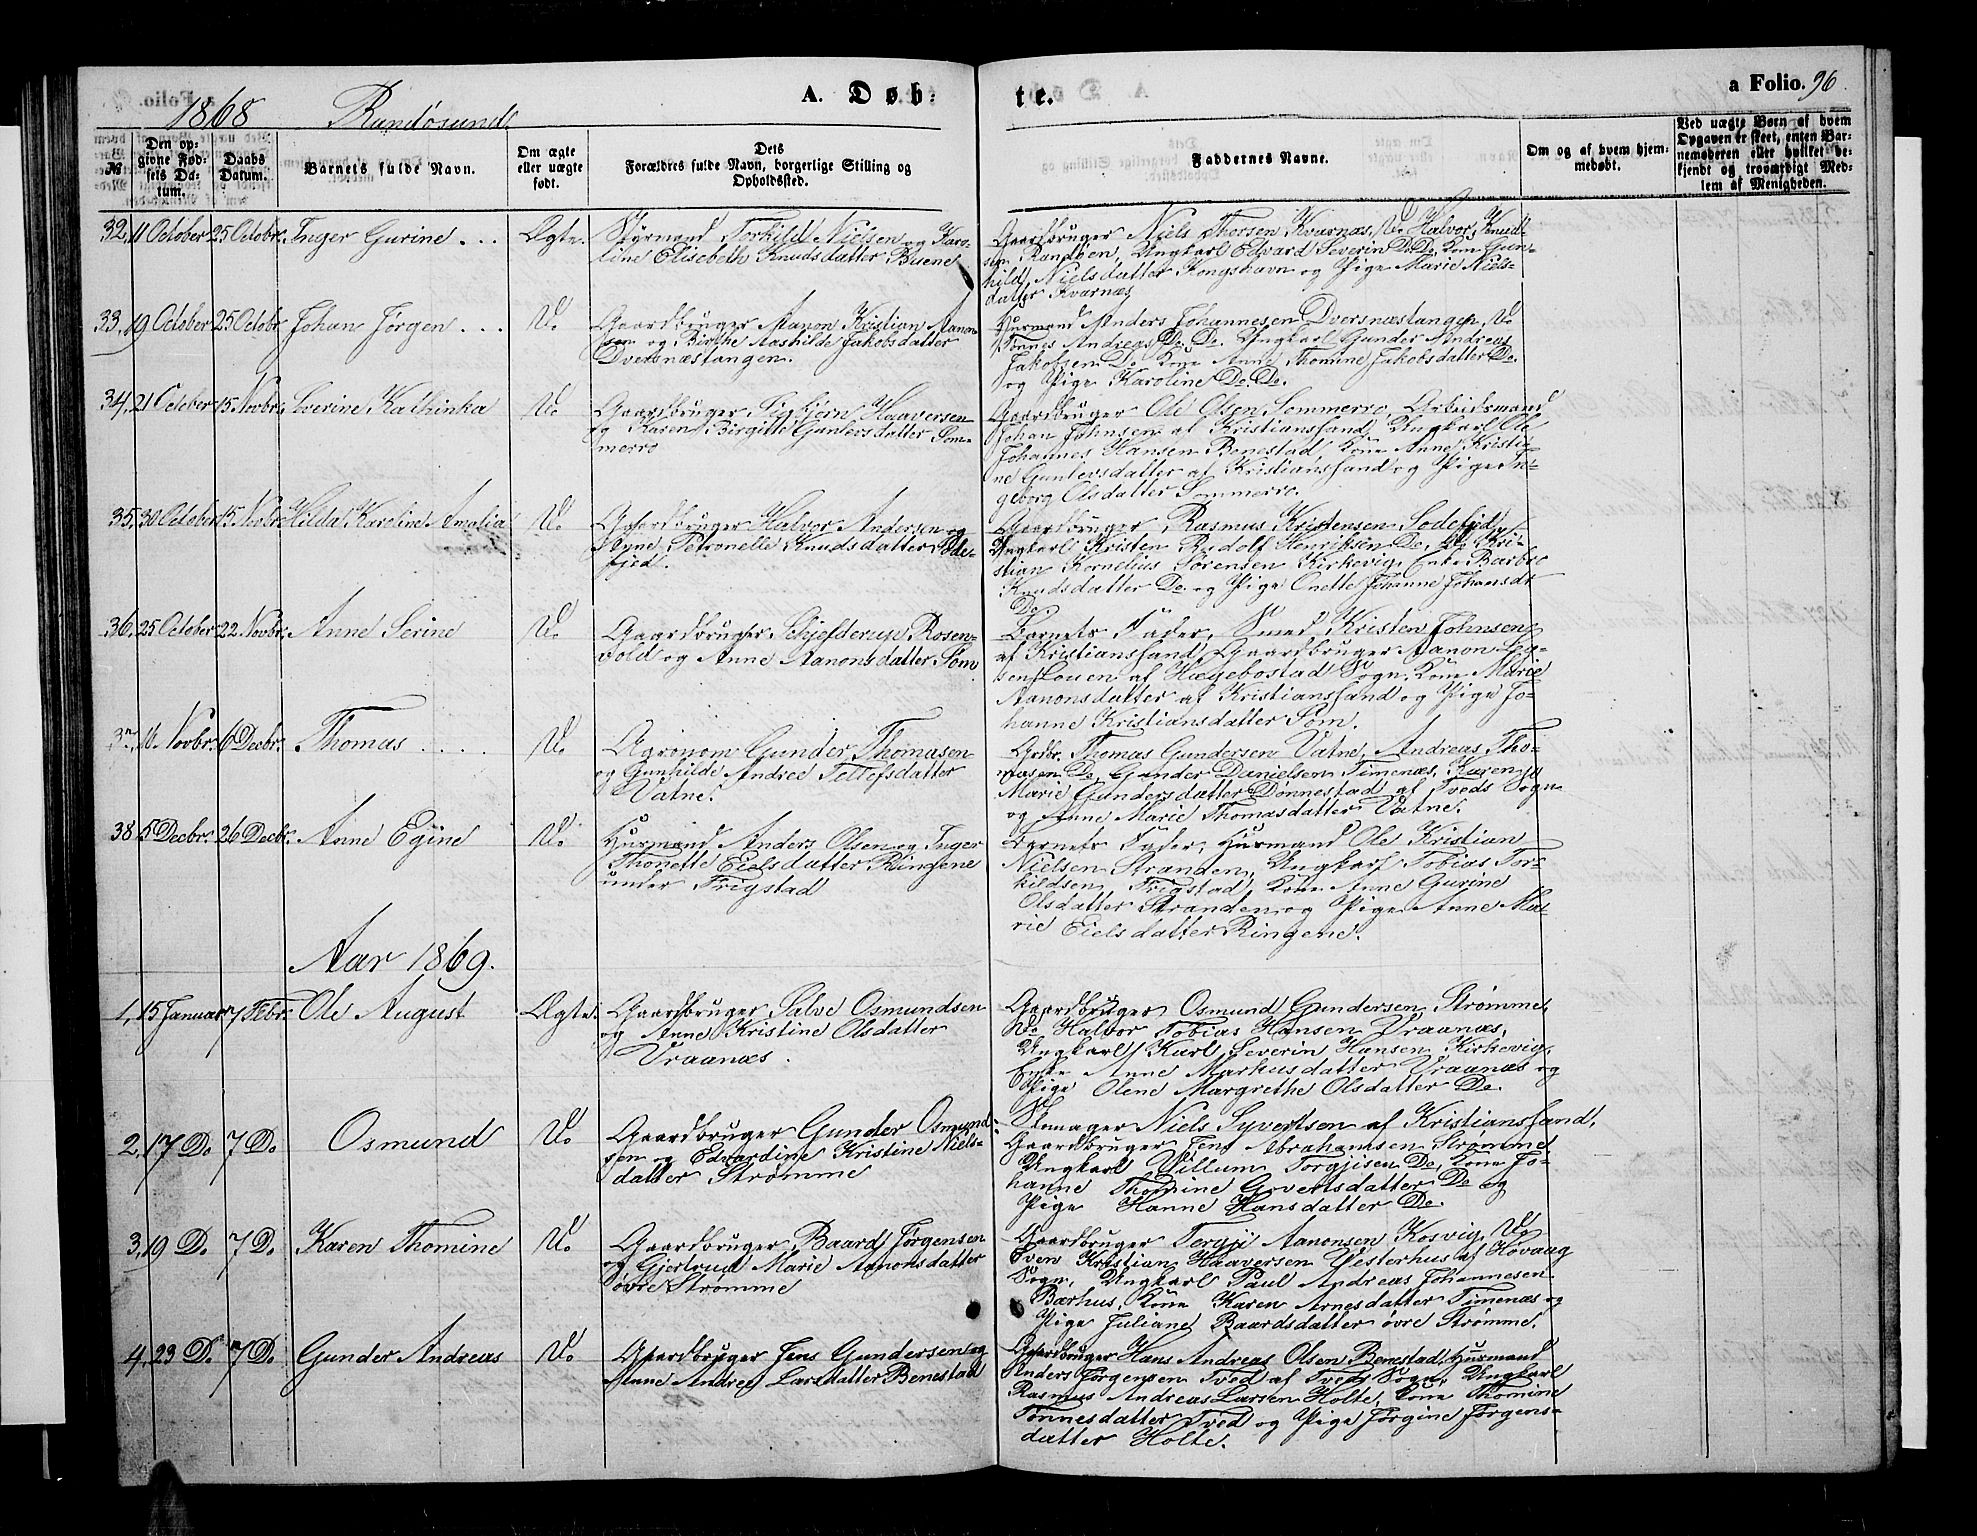 1868 Randøsund.
A. Døb:
te.
a Folio. 96
№
Den op-
givne Fød-
sels Da-
tum.
Daabs
Datum.
Barnets fulde Navn.
Om ægte
eller uægte
født.
Dets
Forældres fulde Navn, borgerlige Stilling og
Opholdssted.
Faddernes Navne.
Om og af hvem hjem-
medøbt.
Ved uægte Børn af hvem
Opgaven er skeet, enten Bar-
nemoderen eller hvilket be-
kjendt og troværdigt Med-
lem af Menigheden.
32, 11 October 25 Octobr. Inger Gurine . . . Ægte. Styrmand Torkild Nielsen og Karo-
line Elisebeth Knudsdatter Buene
Gaardbruger Niels Thorsen Kvarnæs, Do Halvor Knud-
sen Randøen, Ungkarl Edvard Severin De De, Kone Gun-
hild Nielsdatter Kongshavn og Pige Marie Niels-
datter Kvarnæs
33, 19 October 25 Octobr. Johan Jørgen . . . Do Gaardbruger Aanon Kristian Aanon-
sen og Birthe Aashilde Jakobsdatter
Dversnæstangen.
Husmand Anders Johannesen Dversnæstangen, Do
Tønnes Andreas De De. Ungkarl Gunder Andreas
Jakobsen De Kone Anne Thomine Jakobsdatter De.
og Pige Karoline De. De.
34, 21 October 15 Novbr. Severine Kathinka Do Gaardbruger Sigbjørn Haaversen
og Karen Birgitte Guntersdatter Som-
merro
Gaardbruger Ole Olsen Sommerro, Arbeidsmand
Johan Johnsen af Kristianssand, Ungkarl Ole
Johannes Hansen Bonestad, Kone Anne Kristi-
ne Guntersdatter af Kristianssand og Pige In-
geborg Olsdatter Sommerro.
35, 30 October 15 Novbr Hilda Karoline Amalia Do Gaardbruger Halvor Andersen og
Anne Petronelle Knudsdatter Sode-
fjed.
Gaardbruger Rasmus Kristensen Sodefjed,
Ungkarl Kristen Rudolf Henriksen De, Do Kri-
stian Kornelius Sørensen Kirkevig, Enke Barbro
Knudsdatter De. og Pige Onette Johanne Johansdt
De.
36, 25 October 22 Novbr. Anne Serine Do Gaardbruger Schjelderup Rosen-
vold og Anne Aanonsdatter Søm
Barnets Fader, Smed Kristen Johnsen
af Kristianssand, Gaardbruger Aanon
af Hægebostad Sogn, Kone Marie
Aanonsdatter af Kristianssand og Pige Jo-
hanne Kristiansdatter Søm.
37, Novbr. 6 Decbr. Thomas . . . . Do Agronom Gunder Thomasen
og Gunhilde Andrea Tellefsdatter
Vatne.
Grdbr. Thomas Gundersen Vatne, Andreas Tho-
masen De, Gunder Danielsen Timenæs, Karen
Marie Gundersdatter Dønnestad af Tveds Sogn
og Anne Marie Thomasdatter Vatne.
38 5 Decbr. 26 Decbr. Anne Egine Do Husmand Anders Olsen og Inger
Thonette Eielsdatter Ringene
under Frigstad
Barnets Fader, Husmand Ole Kristian
Nielsen Stranden, Ungkarl Tobias Tor-
kildsen Frigstad, Kone Anne Gurine
Olsdatter Stranden og Pige Anne Ma-
rie Eielsdatter Ringene.
Aar 1869.
1, 15 Januar 7 Febr. Ole August Ægte. Gaardbruger Salve Osmundsen
og Anne Kristine Olsdatter
Vraanæs.
Gaardbruger Osmund Gundersen Strømme,
Do Halvor Tobias Hansen Vraanæs,
Ungkarl Karl Severin Hansen Kirkevig,
Enke Anne Markusdatter Vraanæs og
Pige Olene Margrethe Olsdatter De.
2, 17 D. 7 D. Osmund Do Gaardbruger Gunder Osmund-
sen og Edvardine Kristine Niels-
datter Strømme
Skomager Niels Syvertsen af Kristianssand,
Gaardbruger Jens Abrahamsen Strømme
Ungkarl Villum Torgjisen De, Kone Jo-
hanne Thomine Govertsdatter De og
Pige Hanne Hansdatter De.
3, 19 D. 7 D. Karen Thomine Do Gaardbruger Baard Jørgensen
og Gjertrud Marie Aanonsdatter
øvre Strømme
Gaardbruger Tergji Aanonsen Kosvig, Do
Sven Kristian Haaversen Vesterhus af Høvaag
Sogn, Ungkarl Paul Andreas Johannesen
Bærhus, Kone Karen Arnesdatter Timenæs og
Pige Juliane Baardsdatter øvre Strømme.
4, 23 D. 7 D. Gunder Andreas Do Gaardbruger Jens Gundersen og
Anne Andrea Larsdatter Benestad
Gaardbruger Hans Andreas Olsen Benestad, Husmand
Anders Jørgensen Tved af Tveds Sogn, Ungkarl
Rasmus Andreas Larsen Holte, Kone Thomine
Tønnesdatter Tved og Pige Jørgine Jørgens-
datter Holte.